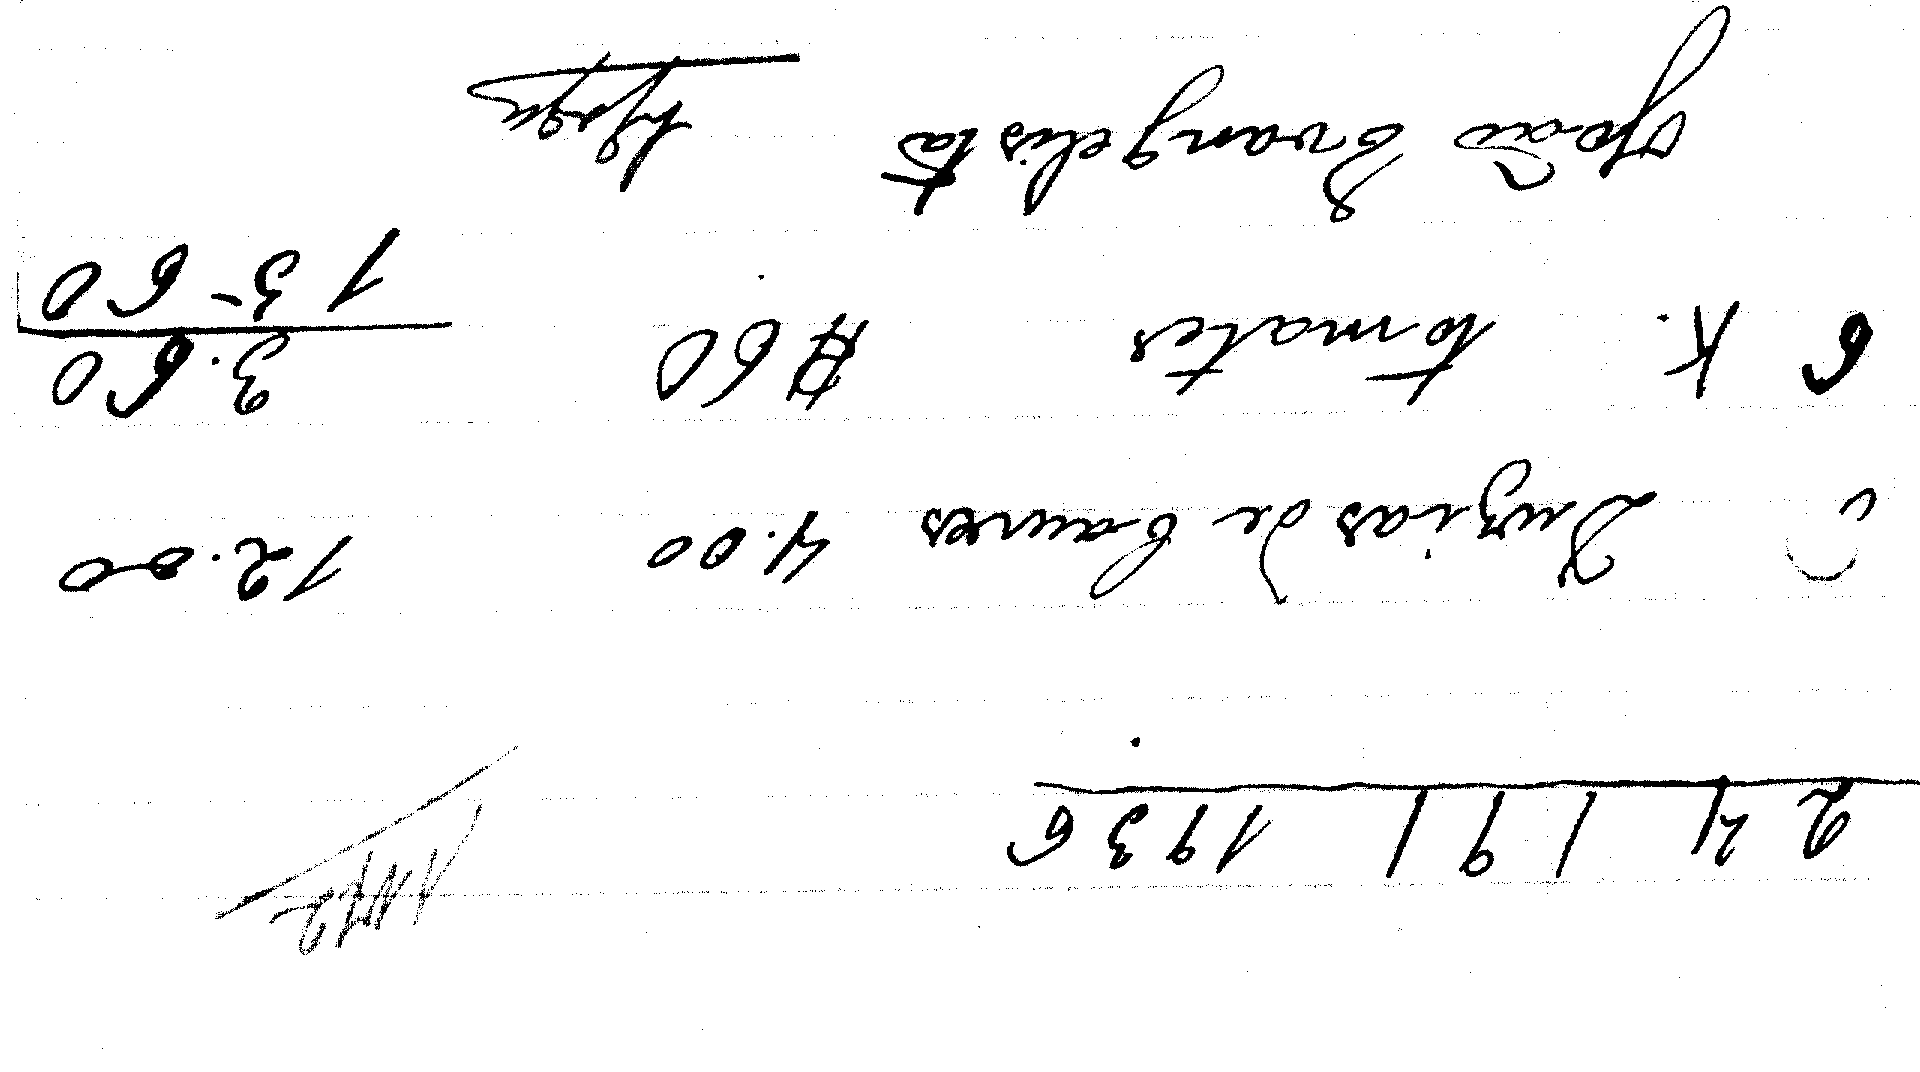 24 / 9 / 1936
Duzias de Couves 4.00 12.00
6 K. tomates $60 3.60
15.60
João Evangelista